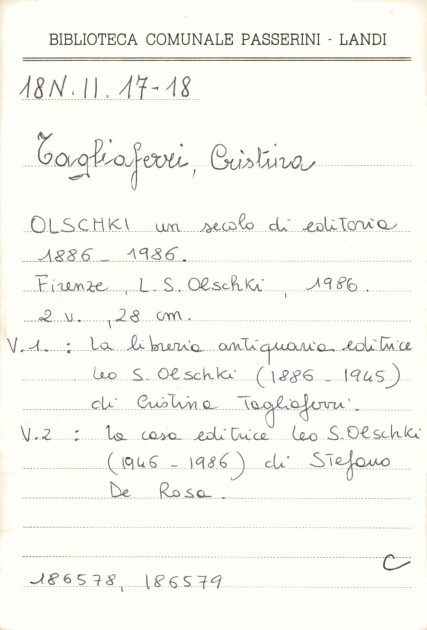 BIBLIOTECA COMUNALE PASSERINI - LANDI
18N.II.17-18
Tagliaferri, Cristina
OLSCHKI un secolo di editoria
1886 - 1986.
Firenze, L.S. Olschki, 1986.
2 v. , 28 cm.
V.1. : La libreria antiquaria editrice
Leo S. Olschki (1886 - 1945)
di Cristina Tagliaferri.
V.2 : La casa editrice Leo S. Olschki
(1946 - 1986) di Stefano
De Rosa.
C
186578, 186579